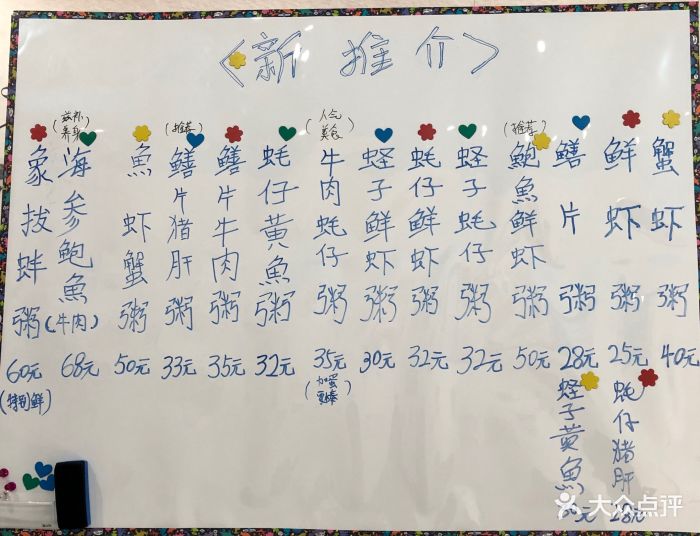 <新推介>
蟹虾粥40元
鲜虾粥25元
蚝仔猪肝28元
鳝片粥28元
蛏子黄魚
(推荐)
鲍魚鲜虾粥50元
蛏子蚝仔粥32元
蚝仔鲜虾粥32元
蛏子鲜虾粥30元
人气美食
牛肉蚝仔粥35元
(加蛋更棒)
蚝仔黄魚粥32元
鳝片牛肉粥35元
(推荐)
鳝片猪肝粥33元
魚虾蟹粥50元
(滋补养身)
海参鲍魚(牛肉)68元
象拔蚌粥60元
(特别鲜)
大众点评